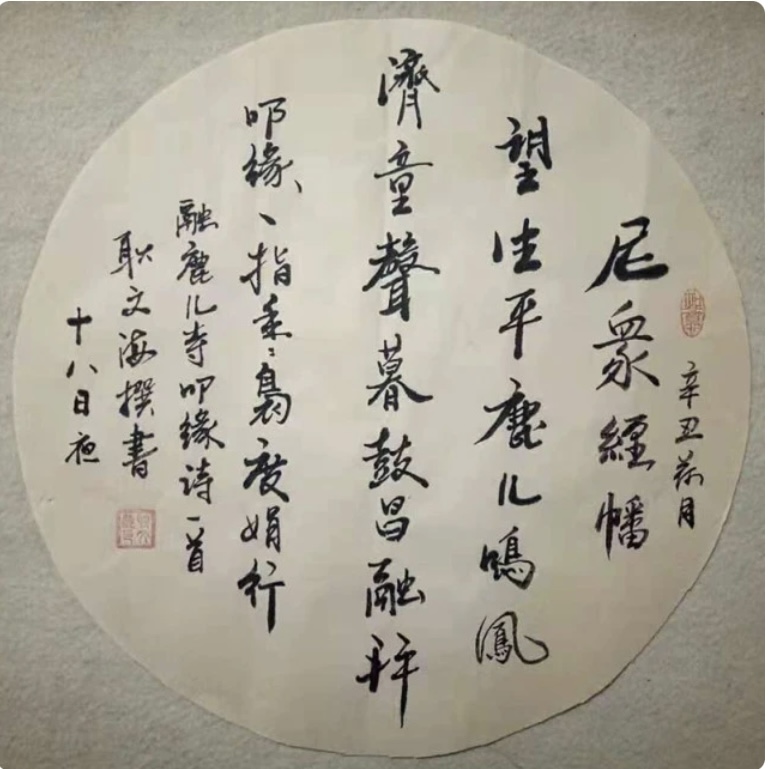 辛丑荷月
尼衆經幡
望生平鹿儿鳴鳳
濟童聲暮鼓昌融
叩缘、丶指垂:为度娟行
融鹿儿寺叩缘诗一首
耿文海撰書
十八日夜